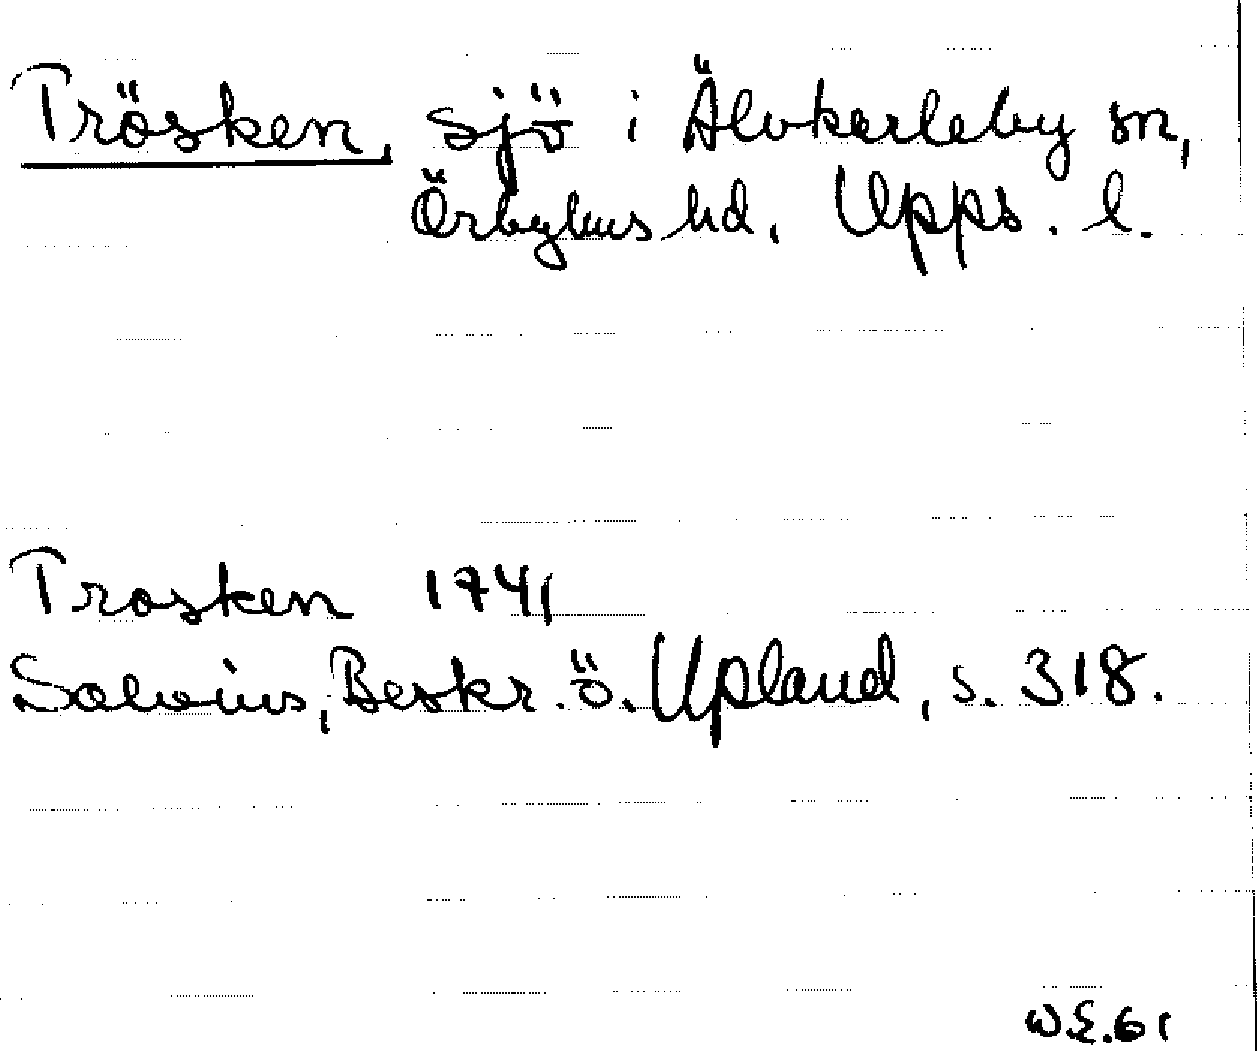 Trösken, sjö i Älvkarleby sn,
Örbyhus hd, Upps. l.
Trosken 1741
Salvius, Beskr. ö. Upland, s. 318.
W.E. 61